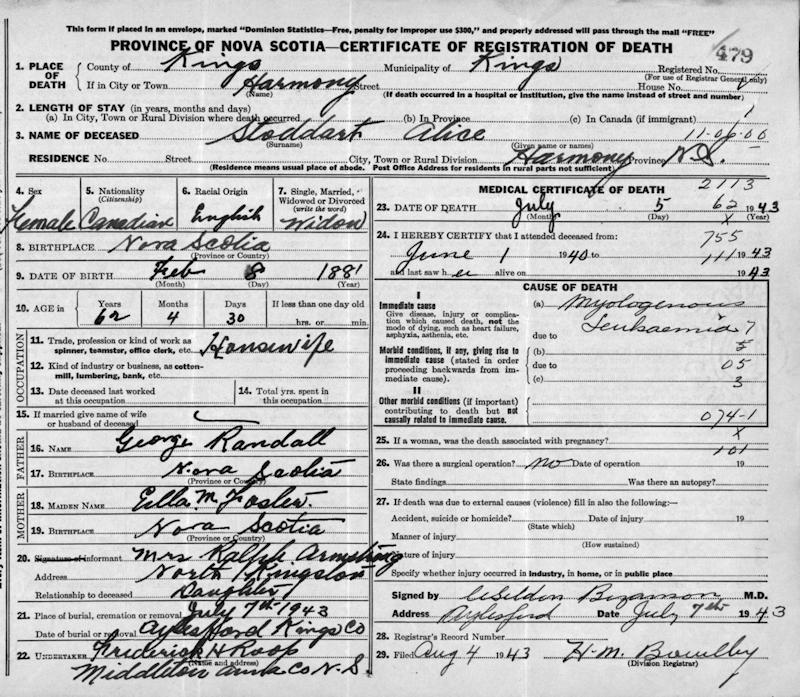 This form if placed in an envelope, marked "Dominion Statistics—Free, penalty for improper use $300," and properly addressed will pass through the mail "FREE"
PROVINCE OF NOVA SCOTIA—CERTIFICATE OF REGISTRATION OF DEATH
479
1. PLACE OF DEATH County of Kings Municipality of Kings Registered No.
(For use of Registrar General only)
If in City or Town Harmony Street House No.
(Name) (If death occurred in a hospital or institution, give the name instead of street and number)
2. LENGTH OF STAY (in years, months and days)
(a) In City, Town or Rural Division where death occurred (b) In Province (c) In Canada (if immigrant) 1
3. NAME OF DECEASED Stoddart Alice 11-06-00
(Surname) (Given name or names)
RESIDENCE No. Street City, Town or Rural Division Harmony Province N.S.
(Residence means usual place of abode. Post Office Address for residents in rural parts not sufficient)
4. Sex Female
5. Nationality (Citizenship) Canadian
6. Racial Origin English
7. Single, Married, Widowed or Divorced (write the word) Widow
8. BIRTHPLACE Nova Scotia
(Province or Country)
9. DATE OF BIRTH Feb 8 1881
(Month) (Day) (Year)
10. AGE in Years Months Days If less than one day old
62 4 30 hrs. or min.
OCCUPATION
11. Trade, profession or kind of work as spinner, teamster, office clerk, etc. Housewife
12. Kind of industry or business, as cotton-mill, lumbering, bank, etc.
13. Date deceased last worked at this occupation
14. Total yrs. spent in this occupation
15. If married give name of wife or husband of deceased
FATHER
16. NAME George Randall
17. BIRTHPLACE Nova Scotia
(Province or Country)
MOTHER
18. MAIDEN NAME Ella M. Foster
19. BIRTHPLACE Nova Scotia
(Province or Country)
20. Signature of informant Mrs Ralph Armstrong
Address North Kingston
Relationship to deceased Daughter
21. Place of burial, cremation or removal July 7th 1943
Date of burial or removal Aylesford Kings Co
22. UNDERTAKER Frederick H Roop
(Name and address)
Middleton Anna. Co N.S.
MEDICAL CERTIFICATE OF DEATH
2113
23. DATE OF DEATH July 5 62 1943
(Month) (Day) X (Year)
24. I HEREBY CERTIFY that I attended deceased from: 755
June 1 1940 to 1943
and last saw h er alive on 1943
CAUSE OF DEATH
I
Immediate cause
Give disease, injury or complication which caused death, not the mode of dying, such as heart failure, asphyxia, asthenia, etc.
(a) Myologenous
Leukaemia 7
due to
5
Morbid conditions, if any, giving rise to immediate cause (stated in order proceeding backwards from immediate cause).
(b)
due to 05
(c) 3
II
Other morbid conditions (if important) contributing to death but not causally related to immediate cause.
074-1
25. If a woman, was the death associated with pregnancy? X
101
26. Was there a surgical operation? no Date of operation 19
State findings Was there an autopsy?
27. If death was due to external causes (violence) fill in also the following:
Accident, suicide or homicide? Date of injury 19
(State which)
Manner of injury
(How sustained)
Nature of injury
Specify whether injury occurred in industry, in home, or in public place
Signed by M.D.
Address Aylesford Date July 7th 1943
28. Registrar's Record Number
29. Filed Aug 4 1943 H. M. Bowlby
(Division Registrar)